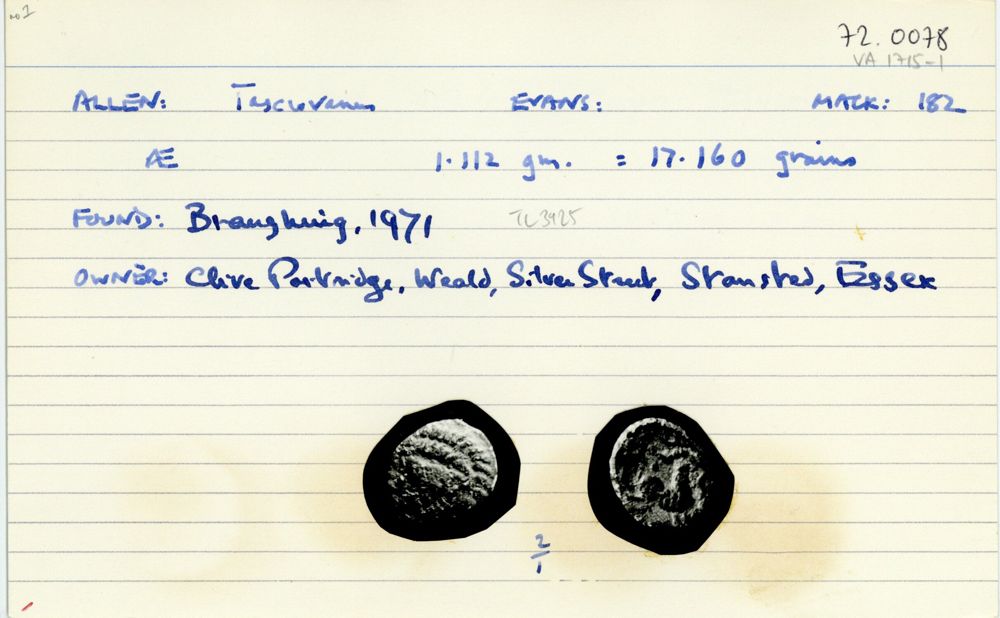 no 1
72.0078
VA 1715-1
ALLEN: Tasciovanus EVANS: MACK: 182
Æ 1.112 gm. = 17.160 grains
FOUND: Braughing, 1971 TL3925
OWNER: Clive Partridge, Weald, Silver Street, Stansted, Essex
2/1